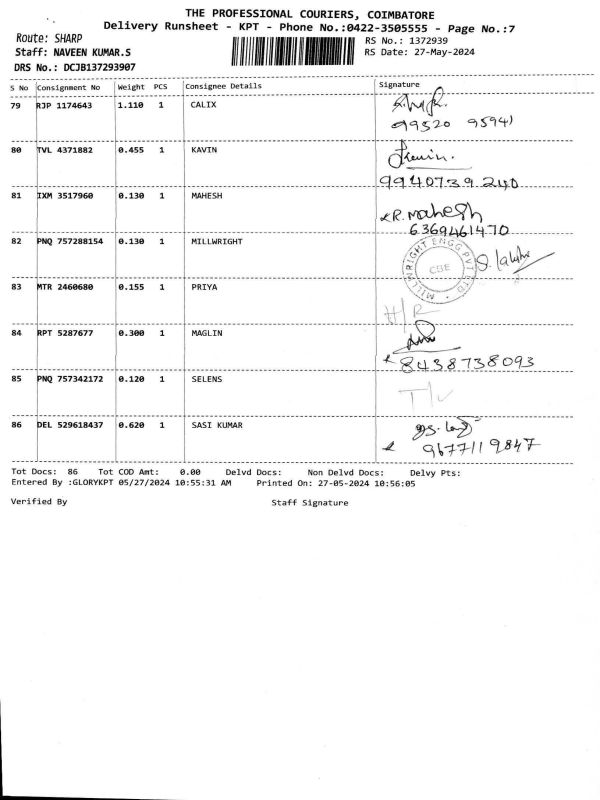 THE PROFESSIONAL COURIERS, COIMBATORE
Delivery Runsheet - KPT - Phone No.:0422-3505555 - Page No.:7
Route: SHARP
RS No.: 1372939
Staff: NAVEEN KUMAR.S
RS Date: 27-May-2024
DRS No.: DCJB137293907
S No Consignment No Weight PCS Consignee Details Signature
79 RJP 1174643 1.110 1 CALIX
99520 95941
80 TVL 4371882 0.455 1 KAVIN
Kavin.
9940739240
81 IXM 3517960 0.130 1 MAHESH
R. Mahesh
6369461470
82 PNQ 757288154 0.130 1 MILLWRIGHT
MILLWRIGHT ENGG PVT LTD
CBE
83 MTR 2460680 0.155 1 PRIYA
H/R
84 RPT 5287677 0.300 1 MAGLIN
8438738093
85 PNQ 757342172 0.120 1 SELENS
86 DEL 529618437 0.620 1 SASI KUMAR
9677119847
Tot Docs: 86 Tot COD Amt: 0.00 Delvd Docs: Non Delvd Docs: Delvy Pts:
Entered By :GLORYKPT 05/27/2024 10:55:31 AM Printed On: 27-05-2024 10:56:05
Verified By Staff Signature